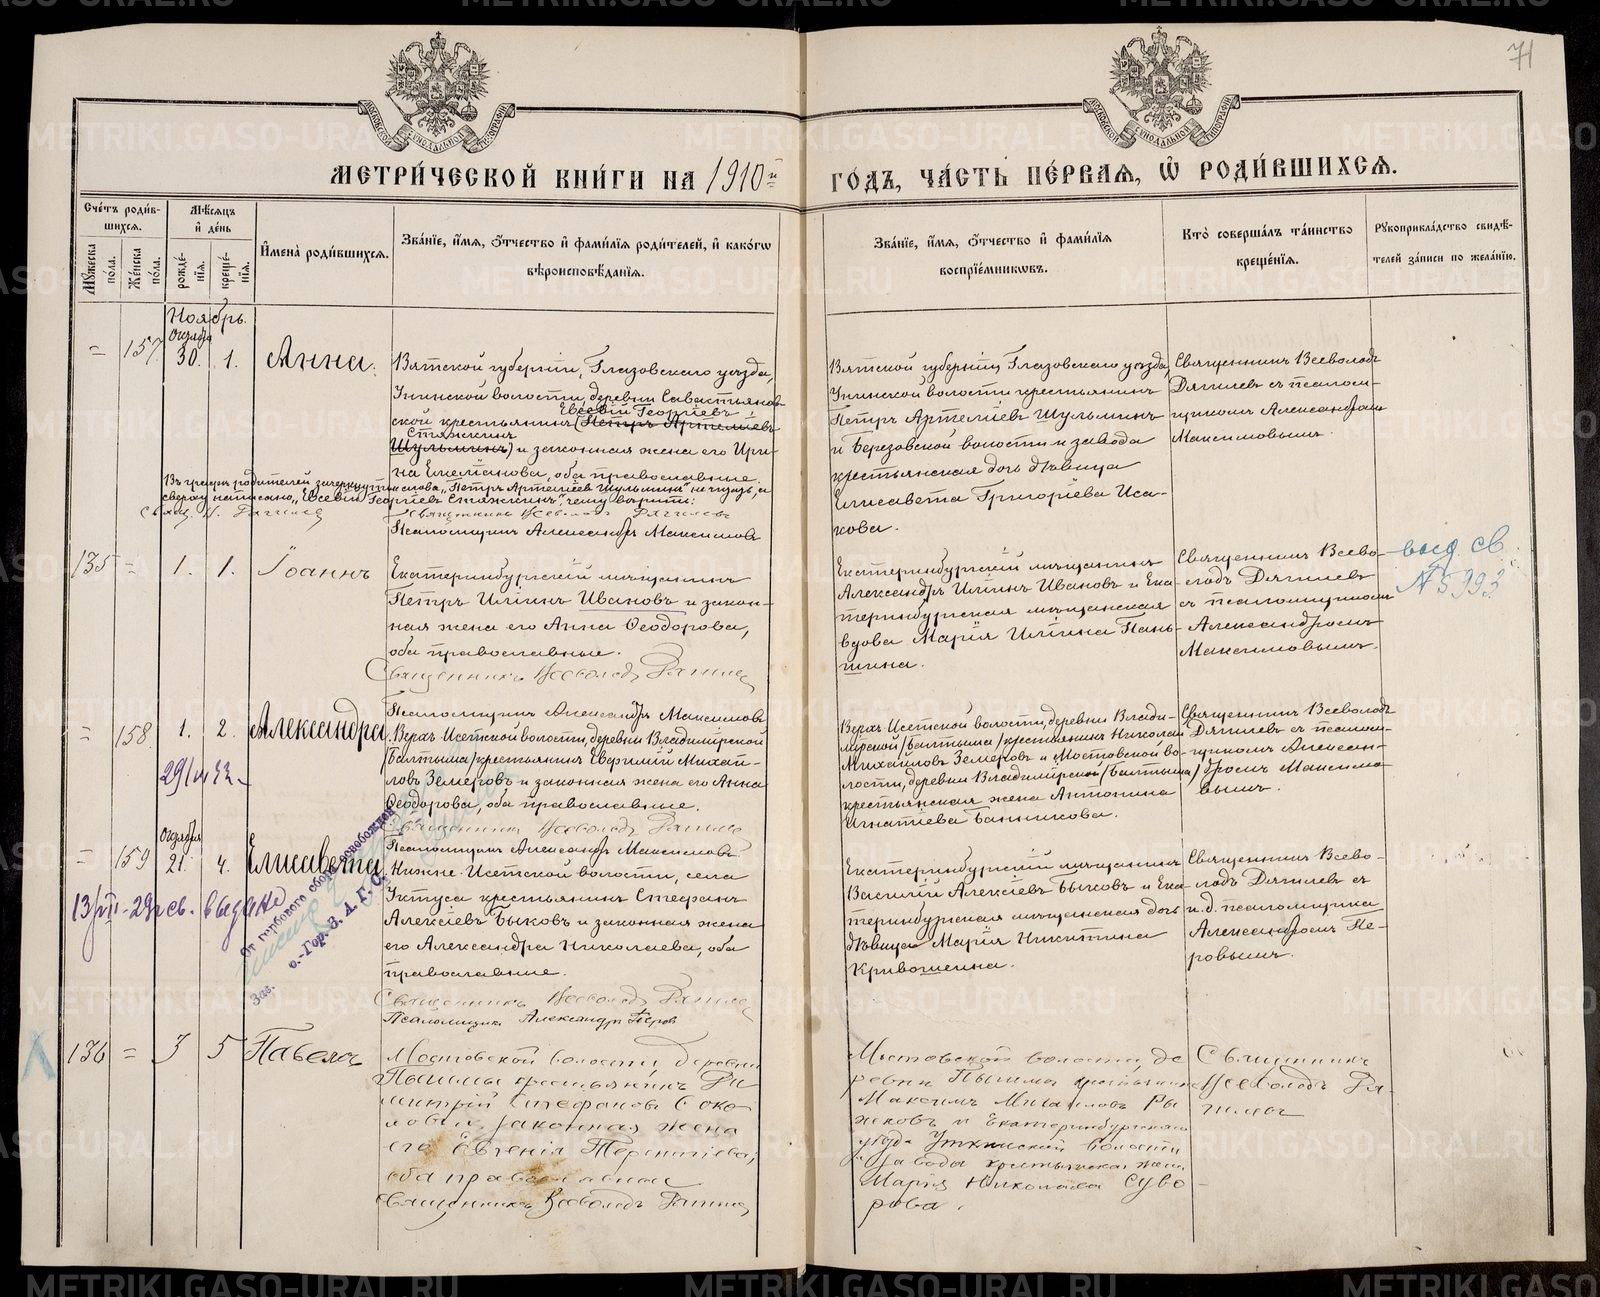 71
МОСКОВСКОЙ СѴНОДАЛЬНОЙ ТИПОГРАФІИ
МОСКОВСКОЙ СѴНОДАЛЬНОЙ ТИПОГРАФІИ
МЕТРИ́ЧЕСКОЙ КНИ́ГИ НА 1910й ГО́ДЪ, ЧА́СТЬ ПЕ́РВАѦ, Ѿ РОДИ́ВШИХСѦ.
Сче́тъ роди́в-
шихсѧ.
Мꙋ́жеска по́ла.
Же́нска по́ла.
Мѣ́сѧцъ и де́нь
рожде́-
нїѧ.
креще́-
нїѧ.
И҆мена̀ роди́вшихсѧ.
Зва́нїе, и҆́мѧ, ѻ҆́тчество и҆ фами́лїѧ роди́телей, и҆ како́гѡ
вѣроисповѣ́данїѧ.
Зва́нїе, и҆́мѧ, ѻ҆́тчество и҆ фами́лїѧ
воспрїе́мникѡвъ.
Кто̀ соверша́лъ та́инство
креще́нїѧ.
Рꙋкоприкла́дство свидѣ́-
телей за́писи по жела́нїю.
Ноябрь.
Октября
= 157. 30. 1. Анна.
Вятской губерніи, Глазовскаго уѣзда,
Унинской волости, деревни Савастьянов-
Евсевій Георгіевъ
ской крестьянинъ (Петръ Артеміевъ
Стяжкинъ
Шульминъ) и законная жена его Ири-
на Емеліанова, оба православные.
Въ графѣ родителей зачеркнутыя слова "Петръ Артеміевъ Шульминъ" не читать, а
сверху написано "Евсевій Георгіевъ Стяжкинъ", чему вѣрить:
Священникъ Всеволодъ Дягилевъ
Псаломщикъ Александръ Максимовъ
Вятской губерніи, Глазовскаго уѣзда,
Унинской волости крестьянинъ
Петръ Артеміевъ Шульминъ
и Березовской волости и завода
крестьянская дочь дѣвица
Елисавета Григоріева Иса-
кова.
Священникъ Всеволодъ
Дягилевъ съ псалом-
щикомъ Александромъ
Максимовымъ.
135 = 1. 1. Іоаннъ
Екатеринбургскій мѣщанинъ
Петръ Иліинъ Ивановъ и закон-
ная жена его Анна Ѳеодорова,
оба православные.
Священникъ Всеволодъ Дягилевъ
Псаломщикъ Александръ Максимовъ
Екатеринбургскій мѣщанинъ
Александръ Иліинъ Ивановъ и Ека-
теринбургская мѣщанская
вдова Марія Иліина Пань-
шина.
Священникъ Всево-
лодъ Дягилевъ
съ псаломщикомъ
Александромъ
Максимовымъ.
выд. св.
№ 5993
= 158. 1. 2. Александра
Верхъ Исетской волости, деревни Владимірской
/Балтыма/ крестьянинъ Евгений Михаи-
ловъ Земеровъ и законная жена его Анна
Ѳеодорова, оба православные.
Священникъ Всеволодъ Дягилевъ
Псаломщикъ Александръ Максимовъ
Верхъ Исетской волости, деревни Влади-
мірской /Балтыма/ крестьянинъ Николай
Михайловъ Земеровъ и Мостовской во-
лости, деревни Владимірской /Балтыма/
крестьянская жена Антонина
Игнатіева Банникова.
Священникъ Всеволодъ
Дягилевъ съ псалом-
щикомъ Алексан-
дромъ Максимо-
вымъ.
Октября
= 159 21. 4. Елисавета
13/III-29г св. выдано
От гербового сбора освобожден
Зав.
Нижне-Исетской волости, села
Уктуса крестьянинъ Стефанъ
Алексіевъ Быковъ и законная жена
его Александра Николаева, оба
православные.
Священникъ Всеволодъ Дягилевъ
Псаломщикъ Александръ Перовъ
Екатеринбургскій мѣщанинъ
Василій Алексіевъ Быковъ и Ека-
теринбургская мѣщанская дочь
дѣвица Марія Никитина
Кривошеина.
Священникъ Всево-
лодъ Дягилевъ съ
и.д. псаломщика
Александромъ Пе-
ровымъ.
136 = 3 5 Павелъ
Мостовской волости, деревни
Пышмы крестьянинъ Ди-
митрій Стефановъ Соко-
ловъ и законная жена
его Евгенія Терентіева,
оба православные
Священникъ Всеволодъ Дягилевъ
Мостовской волости, де-
ревни Пышмы крестьянинъ
Максимъ Михайловъ Ры-
жковъ и Екатеринбургскаго
уѣзда Уткинской волости
завода крестьянская жена
Марія Николаева Суво-
рова.
Священникъ
Всеволодъ Дя-
гилевъ
METRIKI.GASO-URAL.RU